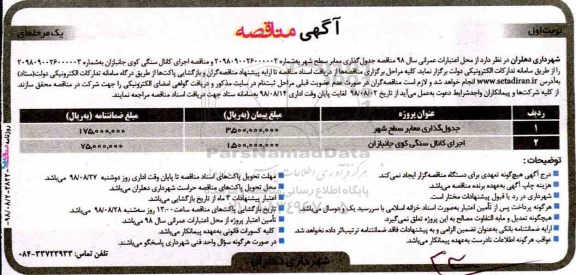 نوبت اول
آگهی مناقصه
یک مرحله‌ای
شهرداری دهلران در نظر دارد از محل اعتبارات عمرانی سال ۹۸ مناقصه جدول‌گذاری معابر سطح شهر به‌شماره ۲۰۹۸۰۹۰۰۲۶۰۰۰۰۰۲ و مناقصه اجرای کانال سنگی کوی جانبازان به‌شماره ۲۰۹۸۰۹۰۰۲۶۰۰۰۰۰۳
را از طریق سامانه تدارکات الکترونیکی دولت برگزار نماید. کلیه مراحل برگزاری مناقصه از دریافت اسناد مناقصه تا ارایه پیشنهاد مناقصه‌گران و بازگشایی پاکت‌ها از طریق درگاه سامانه تدارکات الکترونیکی دولت (ستاد)
به‌آدرس www.setadiran.ir انجام خواهد شد و لازم است مناقصه‌گران در صورت عدم عضویت قبلی مراحل ثبت‌نام در سایت مذکور و دریافت گواهی امضای الکترونیکی را جهت شرکت در مناقصه محقق سازند.
از کلیه شرکت‌ها و پیمانکاران واجدشرایط دعوت به‌عمل می‌آید از تاریخ ۹۸/۰۸/۰۲ لغایت پایان وقت اداری ۹۸/۰۸/۱۴ به‌سامانه ستاد جهت دریافت اسناد مناقصه مراجعه نمایند.
ردیف عنوان پروژه مبلغ پیمان (به‌ریال) مبلغ ضمانتنامه (به‌ریال)
۱ جدول‌گذاری معابر سطح شهر ۳۵۰۰,۰۰۰,۰۰۰ ۱۷۵,۰۰۰,۰۰۰
۲ اجرای کانال سنگی کوی جانبازان ۱۵۰۰,۰۰۰,۰۰۰ ۷۵,۰۰۰,۰۰۰
توضیحات:
درج آگهی هیچ‌گونه تعهدی برای دستگاه مناقصه‌گزار ایجاد نمی‌کند.
هزینه چاپ آگهی به‌عهده برنده مناقصه می‌باشد.
شهرداری در رد یا قبول پیشنهادات مختار است.
هرگونه پرداخت پس از تأمین اعتبار به‌صورت اسناد خزانه اسلامی با سررسید یک یا دوسال می‌باشد.
هیچگونه تعدیل و مابه التفاوت مصالح به این پروژه تعلق نمی‌گیرد.
ارایه ضمانتنامه بانکی به‌عنوان تضمین الزامی و به پیشنهادات فاقد ضمانتنامه ترتیب‌اثر داده نخواهد شد.
عواقب هر گونه اطلاعات نادرست به‌عهده پیمانکار می‌باشد.
مهلت تحویل پاکت‌های اسناد مناقصه تا پایان وقت اداری روز دوشنبه ۹۸/۰۸/۲۷ می‌باشد.
محل تحویل پاکت‌های مناقصه حراست شهرداری دهلران می‌باشد.
اعتبار پیشنهادات ۳ ماه از تاریخ بازگشایی می‌باشد.
تاریخ بازگشایی پاکت‌های مناقصه ساعت ۱۳:۰۰ روز سه‌شنبه ۹۸/۰۸/۲۸ می‌باشد.
تأمین اعتبار پروژه از محل اعتبارات عمرانی سال ۹۸ می‌باشد.
کلیه کسورات قانونی به‌عهده پیمانکار می‌باشد.
در صورت هرگونه سؤال واحد فنی شهرداری پاسخگو می‌باشد.
تلفن تماس: ۳۳۷۲۳۹۳۳-۰۸۴
شهرداری دهلران
ParsNamadData